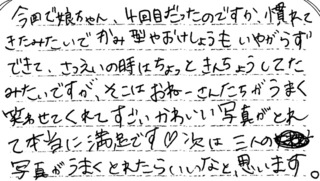 今回で娘ちゃん、4回目だったのですが、慣れて
きたみたいでかみ型やおけしょうもいやがらず
できて、さつえいの時はちょっときんちょうしてた
みたいですが、そこはおねーさんたちがうまく
笑わせてくれてすごいかわいい写真がとれ
て本当に満足です♡次は三人の
写真がうまくとれたらいいなと思います。